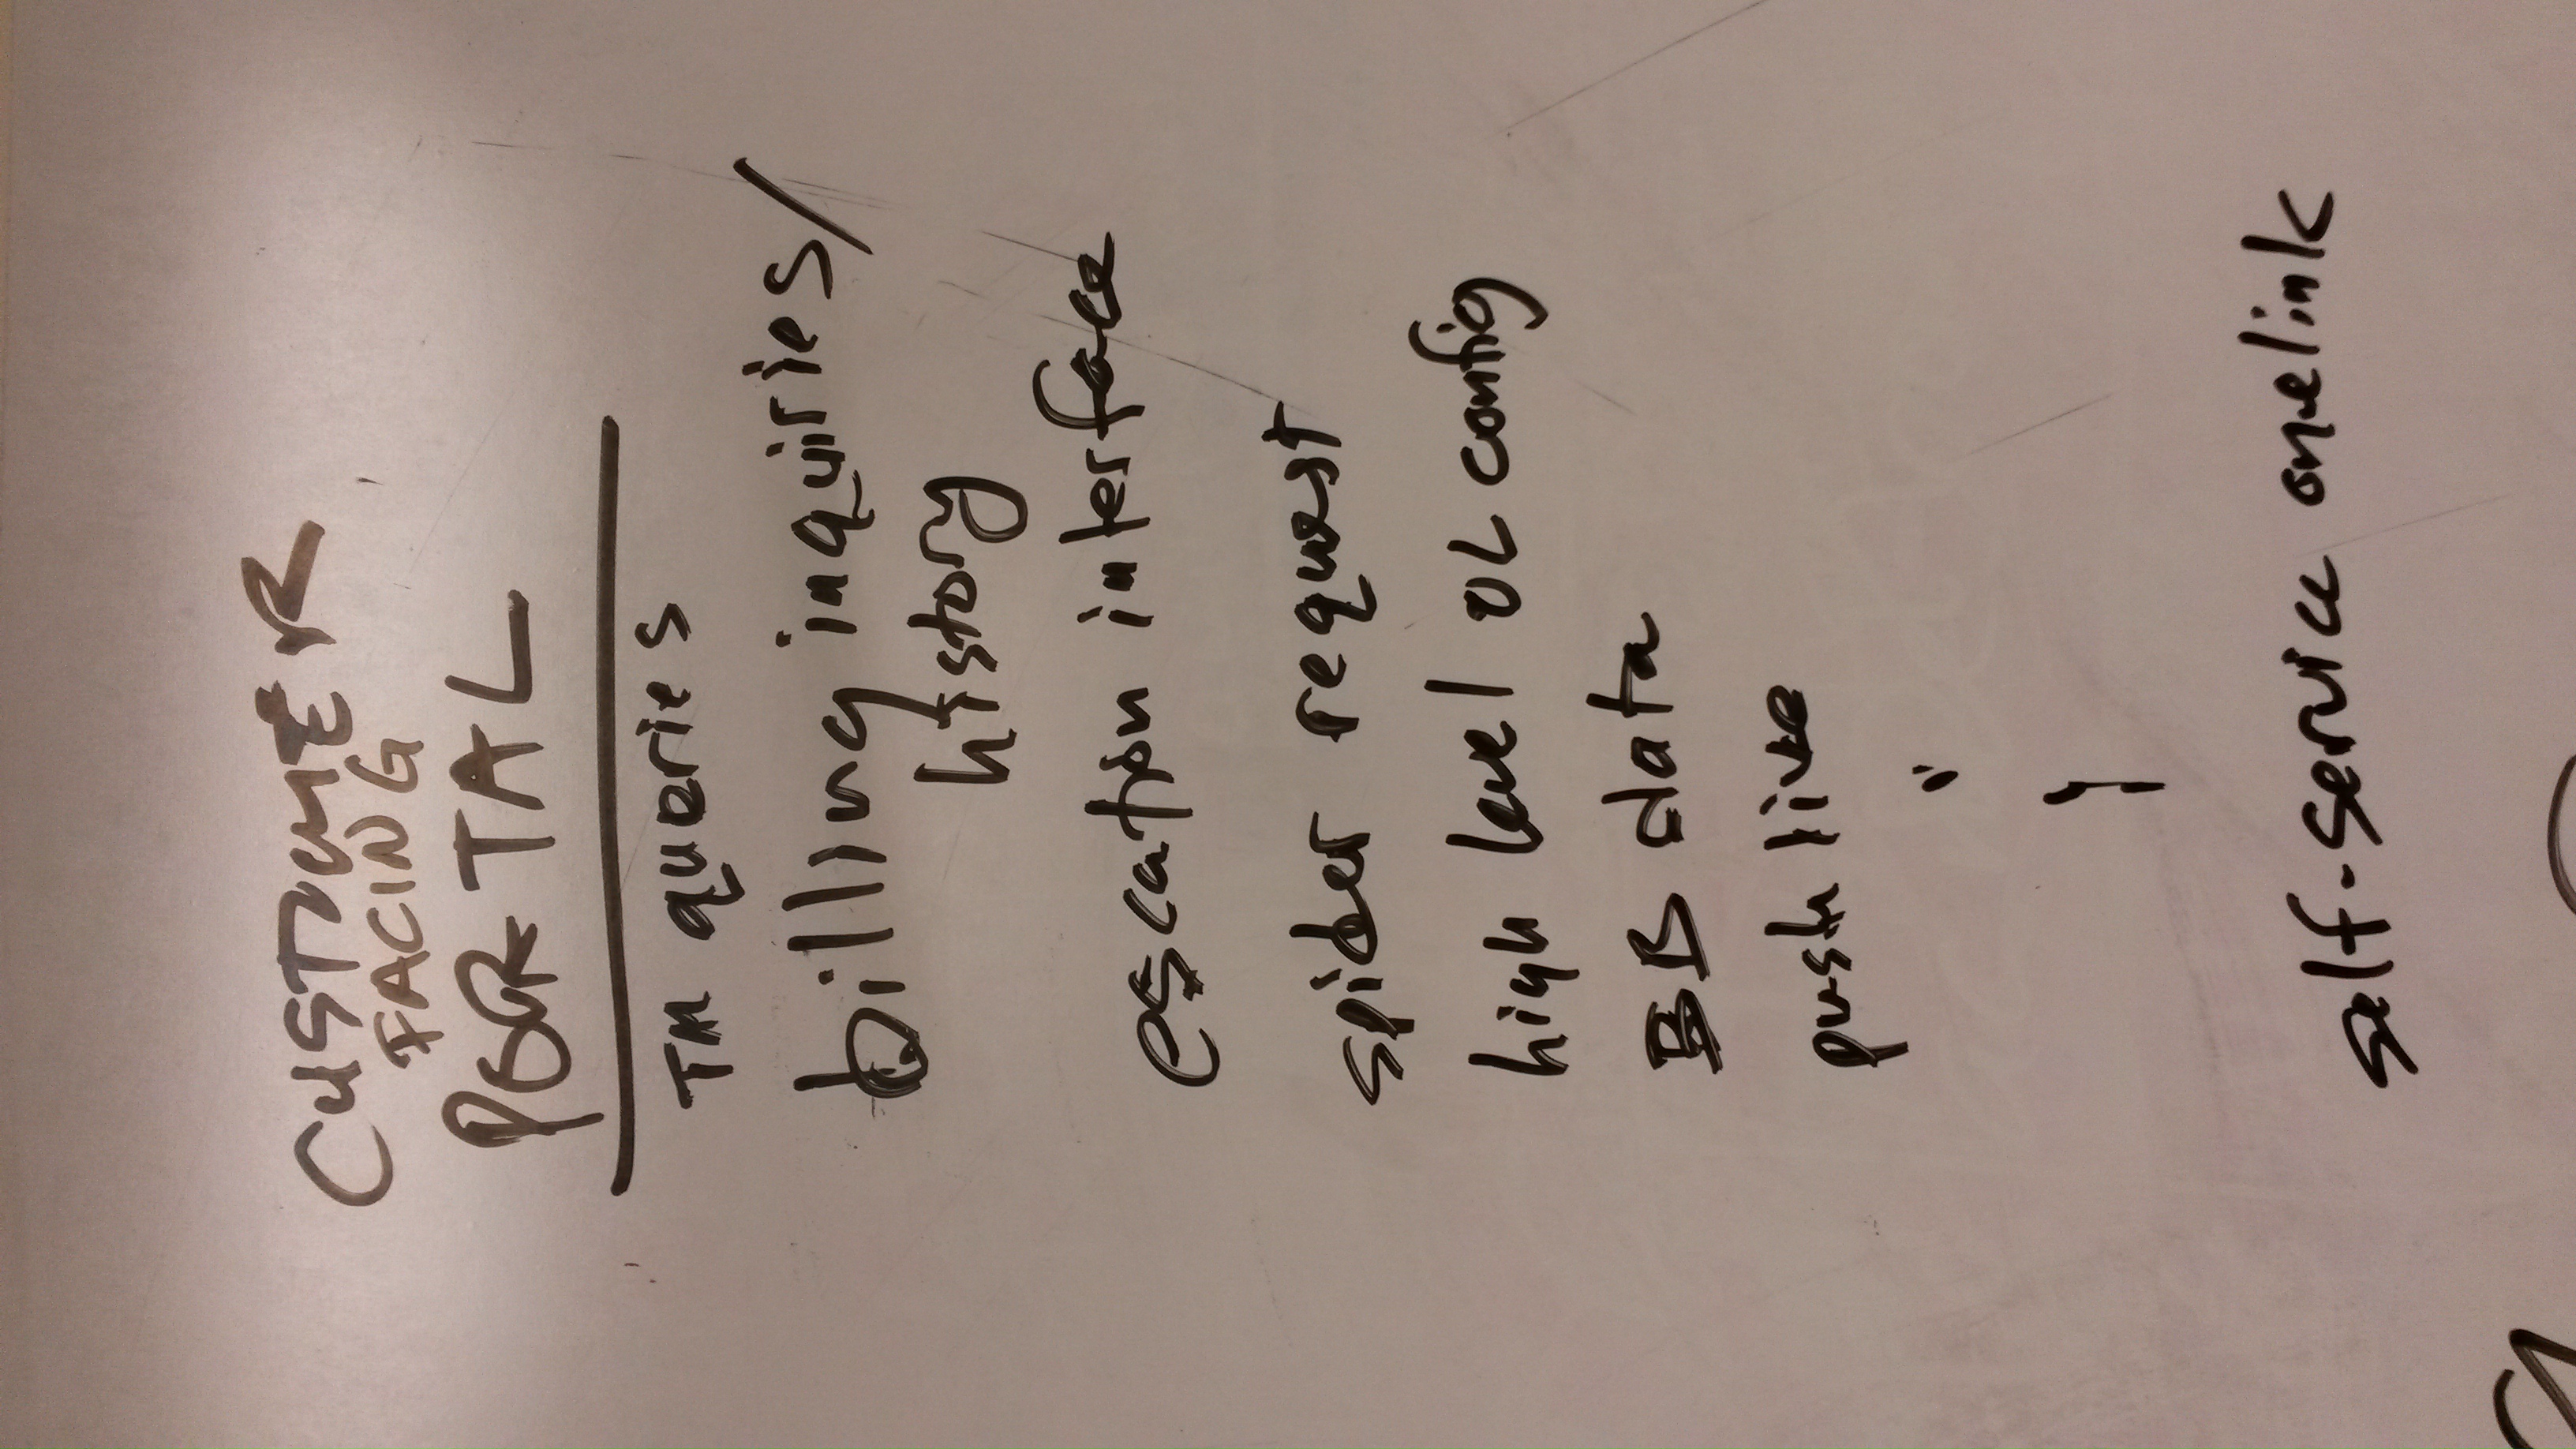 CUSTOMER
FACING
PORTAL
TM queries
billing inquiries/
history
escation interface
spider request
high level OL config
data
push live
"
self-service onelink